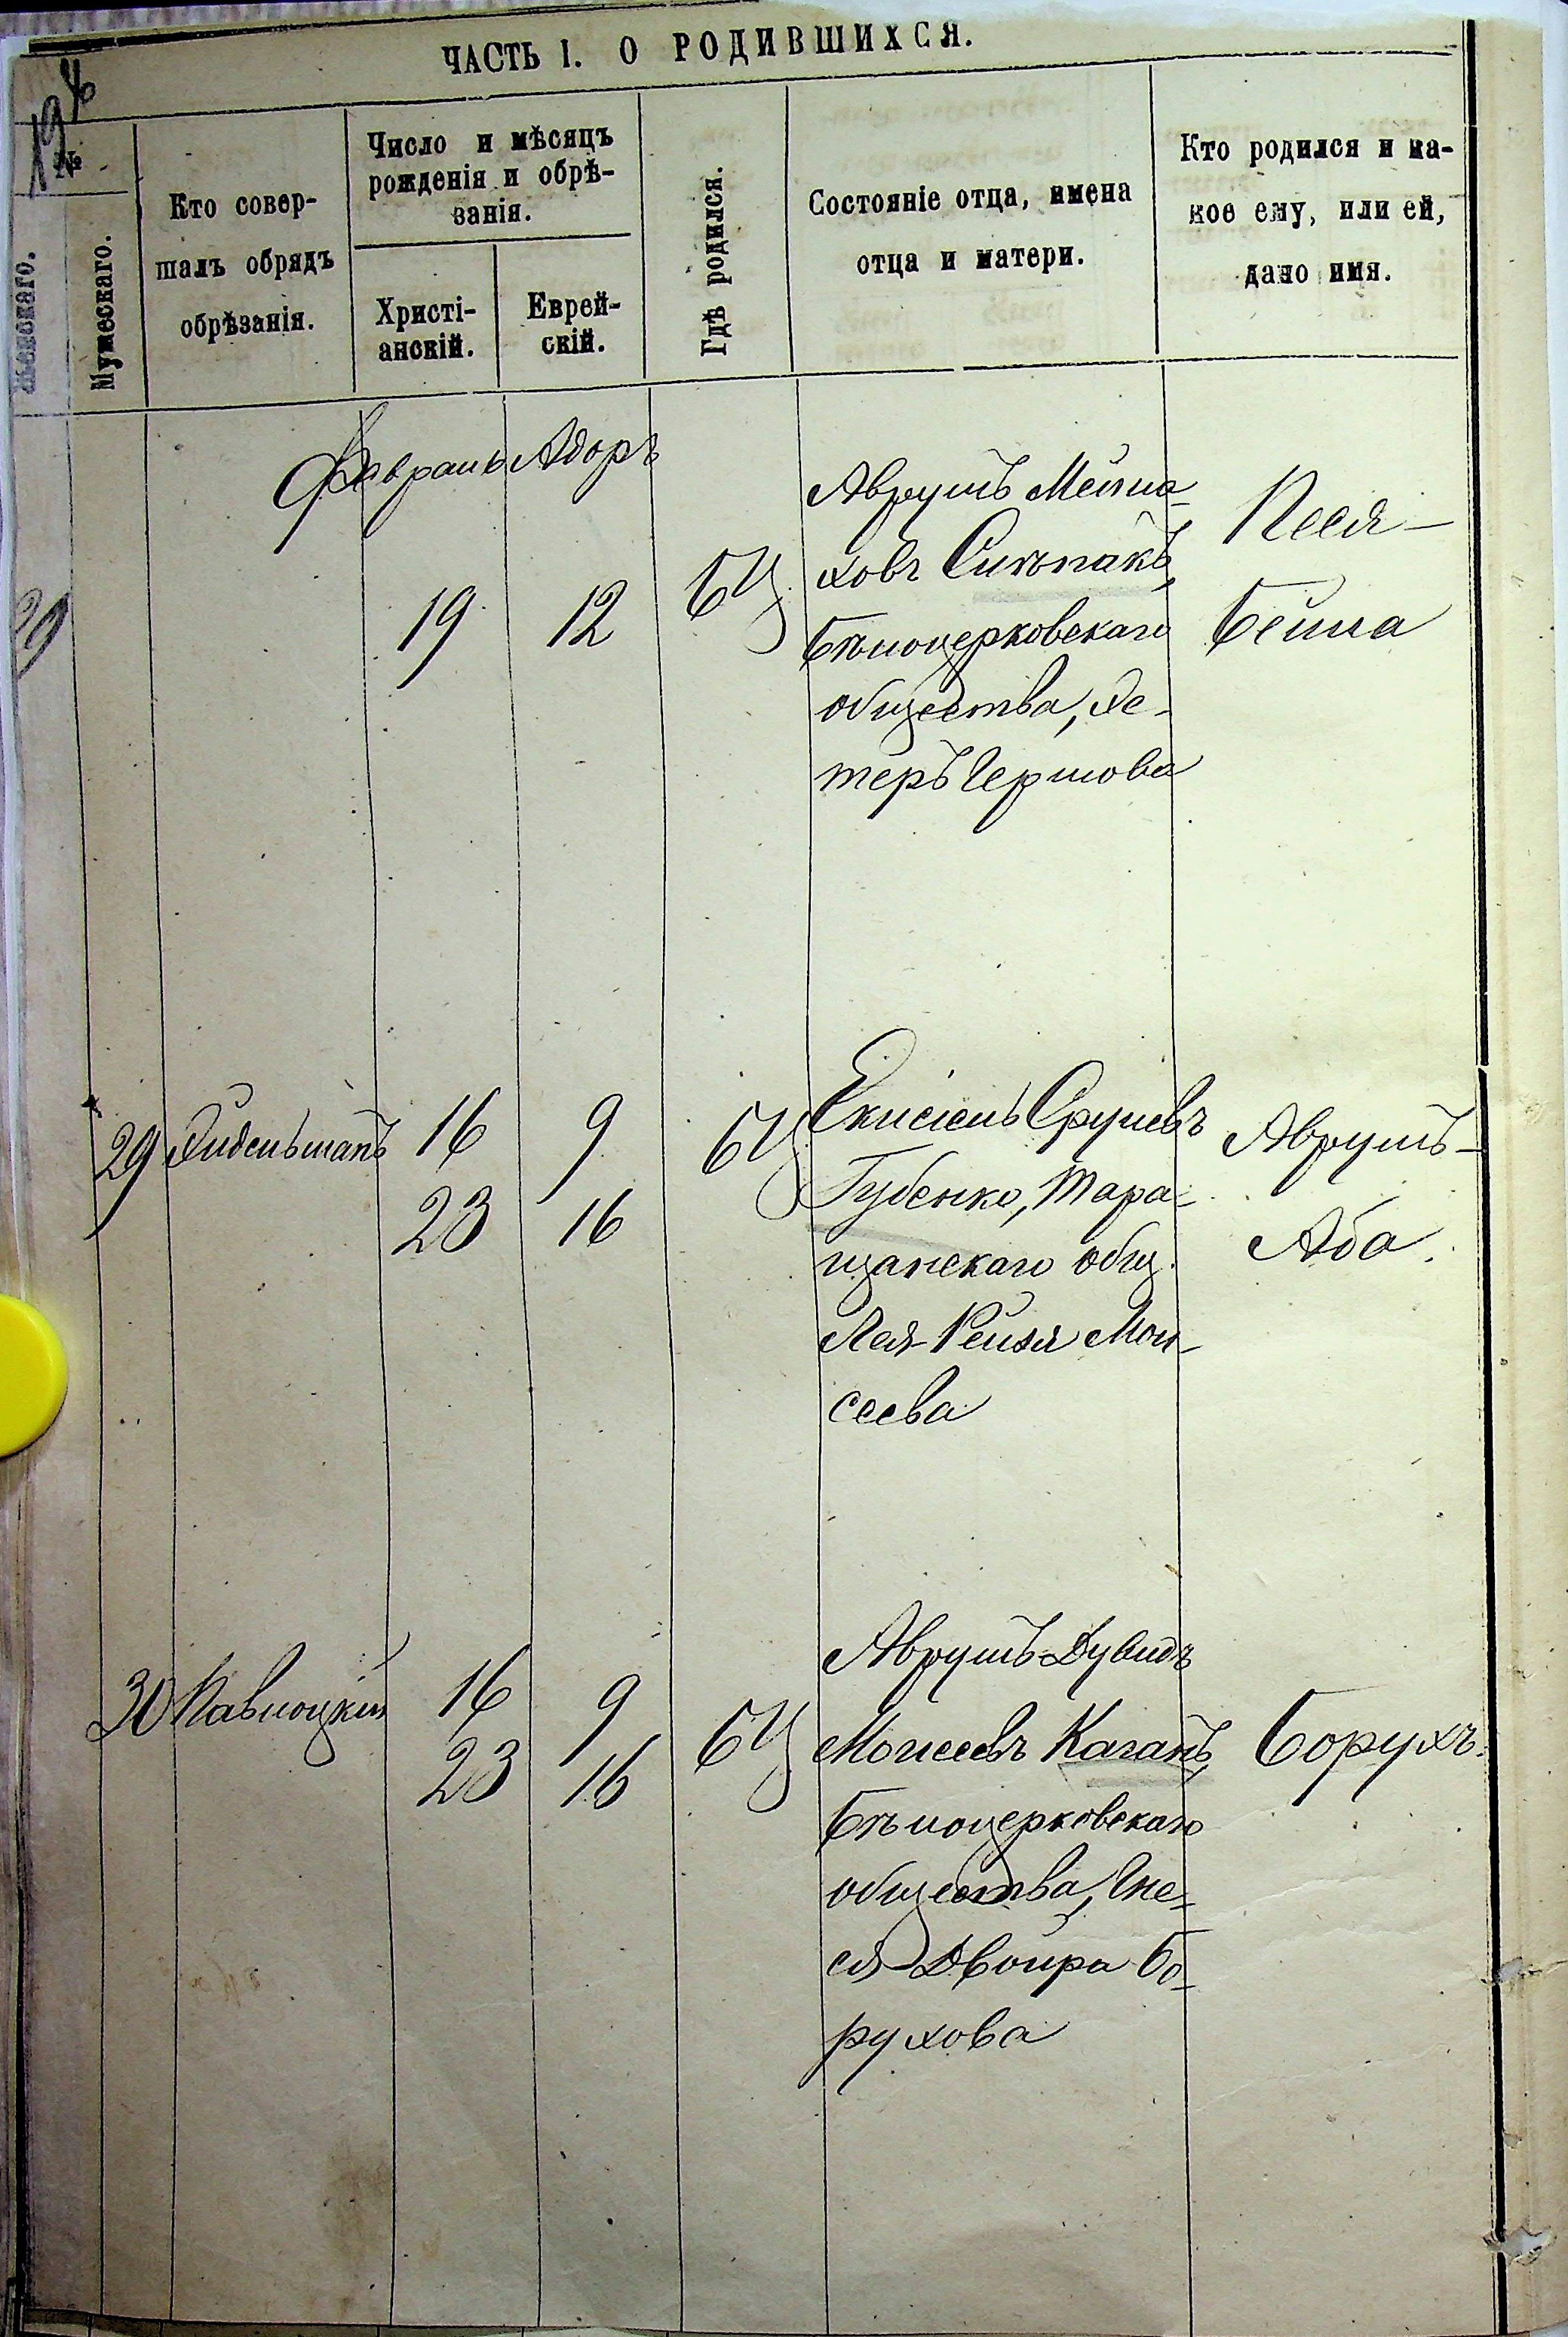 ЧАСТЬ I. О РОДИВШИХСЯ.
№
Женскаго.
Мужескаго.
Кто совер-
шалъ обрядъ
обрѣзанія.
Число и мѣсяцъ
рожденія и обрѣ-
занія.
Христі-
анскій.
Еврей-
скій.
Гдѣ родился.
Состояніе отца, имена
отца и матери.
Кто родился и ка-
кое ему, или ей,
дано имя.
Февраль Адоръ
29
19 12 БЦ
Аврумъ Мейла-
ховъ Сикъпакъ,
Бѣлоцерковскаго
общества, Эс-
теръ Гершова
Песя-
Бейла
29 Эйдельманъ 16 9 БЦ
23 16
Екисіель Срулевъ
Губенко, Тара-
щанскаго общ.
Лея-Рейзя Мои-
сеева
Аврумъ-
Аба.
30 Павлоцкій 16 9 БЦ
23 16
Аврумъ-Дувидъ
Моисеевъ Каганъ,
Бѣлоцерковскаго
общества, Гне-
ся-Двойра Бо-
рухова
Борухъ.